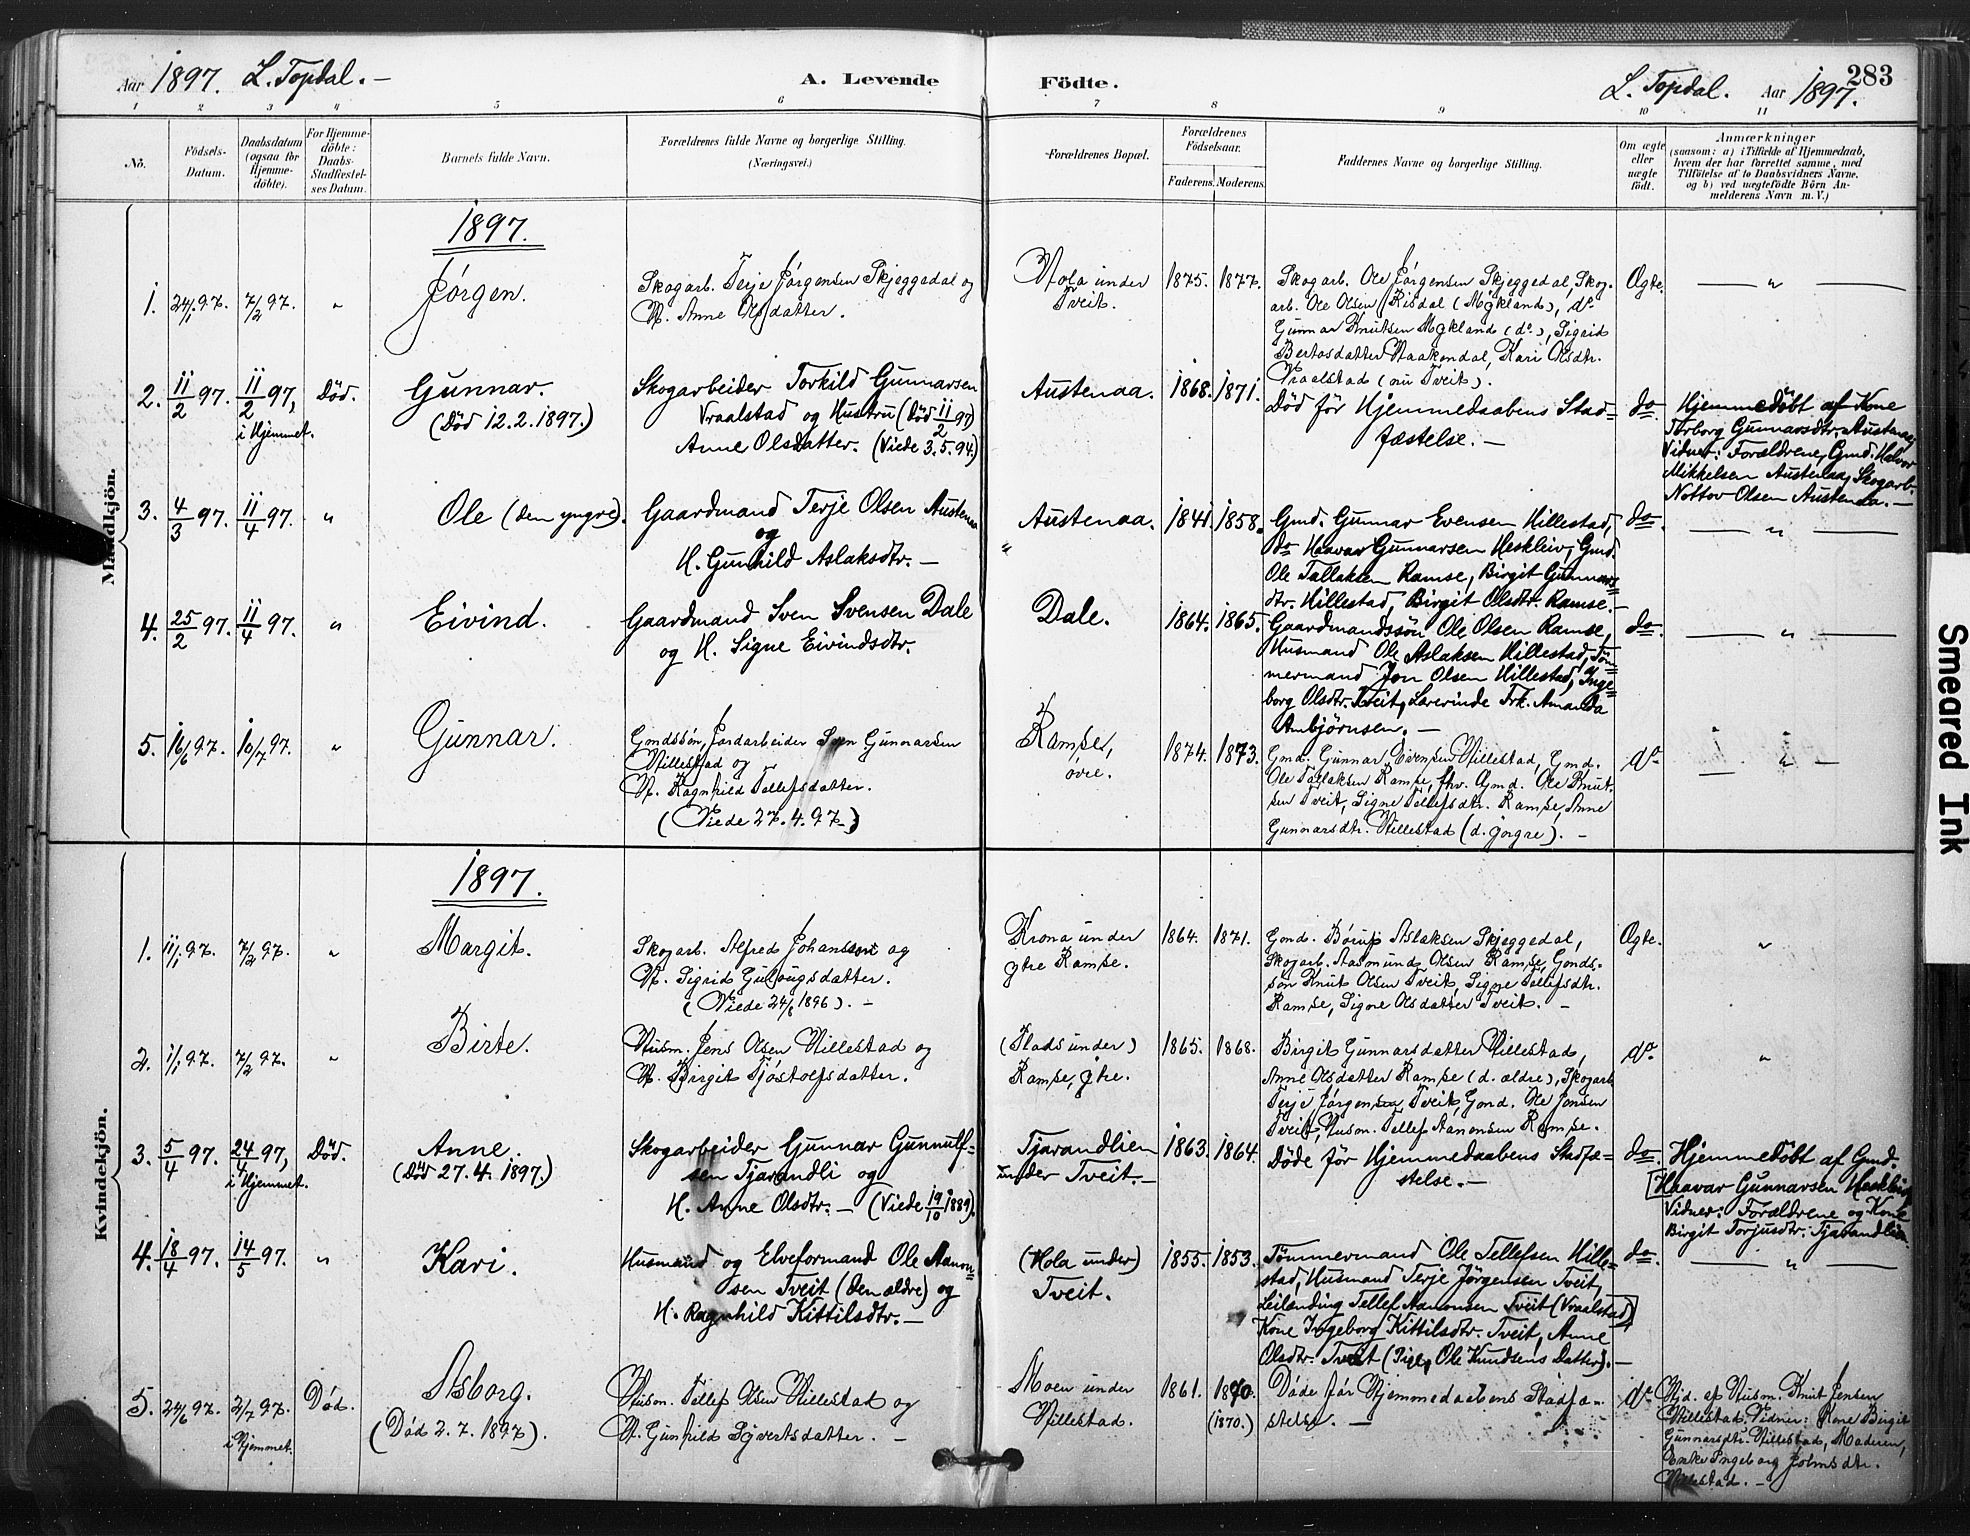 Aar 1897. L. Topdal. — A. Levende Födte. L. Topdal. Aar 1897. 283
1 2 3 4 5 6 7 8 9 10 11
No.
Födsels-
Datum.
Daabsdatum
(ogsaa for
Hjemme-
döbte).
For Hjemme-
döbte:
Daabs-
Stadfæstel-
ses Datum.
Barnets fulde Navn.
Forældrenes fulde Navne og borgerlige Stilling.
(Næringsvei.)
Forældrenes Bopæl.
Forældrenes
Födselsaar.
Faderens. Moderens.
Faddernes Navne og borgerlige Stilling.
Om ægte
eller
uægte
født.
Anmærkninger
(saasom: a) i Tilfælde af Hjemmedaab,
hvem der har forrettet samme, med
Tilföielse af to Daabsvidners Navne.
og b) ved uægtefödte Börn An-
melderens Navn m. V.)
Mandkjön.
1897.
1. 24/1 97. 7/2 97. "
Jörgen.
Skogarb. Terje Jörgensen Skjeggedal og
H. Anne Olsdatter.
Hola under
Tveit.
1875. 1877.
Skogarb. Ole Jörgensen Skjeggedal, Skog-
arb. Ole Olsen Risdal (Mykland), do
Gunnar Knutsen Mykland (do), Sigrid
Bertosdatter Haakendal, Kari Olsdtr.
Vraalstad (nu Tveit).
Ægte. — " —
2. 11/2 97. 11/2 97, i Hjemmet. Död.
Gunnar.
(Död 12.2.1897.)
Skogarbeider Torkild Gunnarsen
Vraalstad og Hustru (Död 11/2 97)
Anne Olsdatter. (Viede 3.5.94.)
Austenaa. 1868. 1871.
Död för Hjemmedaabens Stad-
fæstelse. —
do
Hjemmedöbt af Kone
Torborg Gunnarsdtr. Austenaa,
Vidner: Forældrene, Gmd. Halvor
Mikkelsen Austenaa, Skogarb.
Nottov Olsen Austenaa. —
3. 4/3 97. 11/4 97. "
Ole (den yngre).
Gaardmand Terje Olsen Austenaa
og
H. Gunhild Aslaksdtr. —
Austenaa. 1841. 1858.
"
Gmd. Gunnar Evensen Hillestad,
do Haavar Gunnarsen Heskleiv, Gmd.
Ole Tallaksen Ramse, Birgit Gunnars-
dtr. Hillestad, Birgit Olsdtr. Ramse. —
do. — " —
4. 25/2 97. 11/4 97. "
Eivind.
Gaardmand Sven Svensen Dale
og H. Signe Eivindsdtr.
Dale. 1864. 1865.
Gaardmandssön Ole Olsen Ramse,
Husmand Ole Aslaksen Hillestad, Töm-
mermand Jon Olsen Hillestad, Inge-
borg Olsdtr. Tveit, Lærerinde Frk. Amanda
Anbjörnsen. —
do. — " —
5. 16/6 97. 10/7 97. "
Gunnar.
Gmdssön, Jordarbeider Sven Gunnarsen
Hillestad og
H. Ragnhild Tellefsdatter.
(Viede 27.4.97.)
Ramse,
övre.
1874. 1873.
Gmd. Gunnar Evensen Hillestad, Gmd.
Ole Tallaksen Ramse, fhv. Gmd. Ole Knut-
sen Tveit, Signe Tellefsdtr. Ramse, Anne
Gunnarsdtr. Hillestad (d. yngre). —
do — " —
Kvindekjön.
1897.
1. 11/1 97. 7/2 97. "
Margit.
Skogarb. Alfred Johansen og
H. Sigrid Gulougsdatter.
(Viede 24/6 1896). —
Krona under
ytre Ramse.
1864. 1871.
Gmd. Börup Aslaksen Skjeggedal,
Skogarb. Aasmund Olsen Ramse, Gmds-
sön Knut Olsen Tveit, Signe Tellefsdtr.
Ramse, Signe Olsdatter Tveit. —
Ægte. "
2. 1/1 97. 7/2 97. "
Birte.
Husm. Jens Olsen Hillestad og
H. Birgit Tjöstolfsdatter.
(Plads under)
Ramse, ytre.
1865. 1868.
Birgit Gunnarsdatter Hillestad,
Anne Olsdatter Ramse (d. ældre), Skogarb.
Terje Jörgensen Tveit, Gmd. Ole Jonsen
Tveit, Husm. Tellef Aanonsen Ramse.
do "
3. 5/4 97. 24/4 97, i Hjemmet. Död.
Anne.
(Död 27.4.1897.)
Skogarbeider Gunnar Gunnulf-
sen Tjarandli og
H. Anne Olsdtr. — (Viede 19/10 1889).
Tjarandlien
under Tveit. —
1863. 1864.
Döde för Hjemmedaabens Stadfæ-
stelse. —
do.
Hjemmedöbt af Gmd.
Haavar Gunnarsen Heskleiv
Vidner: Forældrene og Kone
Birgit Torjusdtr. Tjarandlien.
4. 18/4 97. 14/5 97. "
Kari.
Husmand og Elveformand Ole Aanon-
sen Tveit (den ældre) og
H. Ragnhild Kittilsdtr. —
(Hola under)
Tveit.
1855. 1853.
Tömmermand Ole Tellefsen Hille-
stad, Husmand Terje Jörgensen Tveit,
Leilænding Tellef Aanonsen Tveit (Vraalstad)
Kone Ingeborg Kittilsdtr. Tveit, Anne
Olsdtr. Tveit (Pige, Ole Knudsens Datter). —
do. — " —
5. 24/6 97. 2/7 97. i Hjemmet. Död.
Asborg.
(Död 2.7.1897).
Husm. Tellef Olsen Hillestad og
H. Gunhild Syvertsdatter. —
Moen under
Hillestad.
1861. 1870.
(1870.)
Döde för Hjemmedaabens Stadfæ-
stelse. —
do
Hjd. af Husm. Knut Jensen
Hillestad. Vidner: Kone Birgit
Gunnarsdtr. Hillestad, Moderen,
Enke Ingeborg Jolmsdtr.
Hillestad. —
Smeared Ink